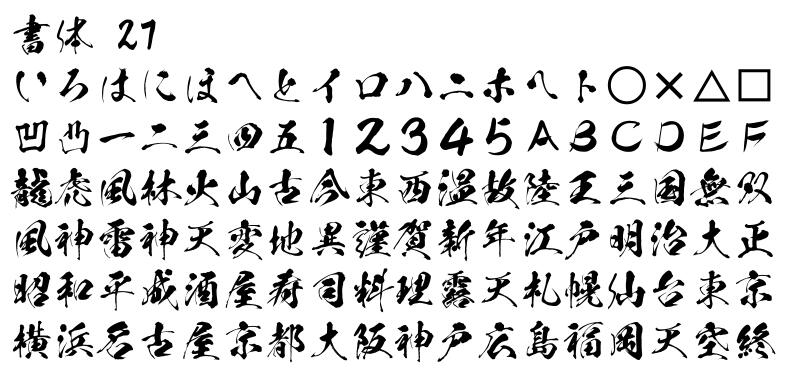 書体 27
いろはにほへとイロハニホヘト○×△□
凹凸一二三四五12345ABCDEF
龍虎風林火山古今東西温故陸王三国無双
風神雷神天変地異謹賀新年江戸明治大正
昭和平成酒屋寿司料理露天札幌仙台東京
横浜名古屋京都大阪神戸広島福岡天空終